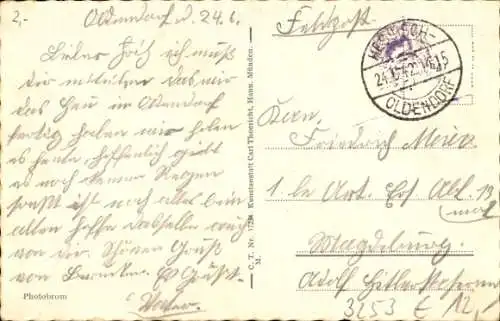 2,-
Oldendorf d. 24.6.
Lieber Fritz ich muß
dir mitteilen das wir
das Heu in Oldendorf
fertig haben wir holen
es heute hoffentlich giebt
es noch keinen Regen
sonst ist noch alles beim
alten hoffe dasselbe auch
von dir. Schönen Gruß
von
Vater.
Photobrom
C. T. Nr. Kunstanstalt Carl Thoericht, Hann. Münden.
M.
Feldpost
HESSISCH-
OLDENDORF
Herrn
Friedrich Meier
1. le Art. Ers. Abt. 13
mot
Magdeburg
Adolf Hitler
3253 E 12,-